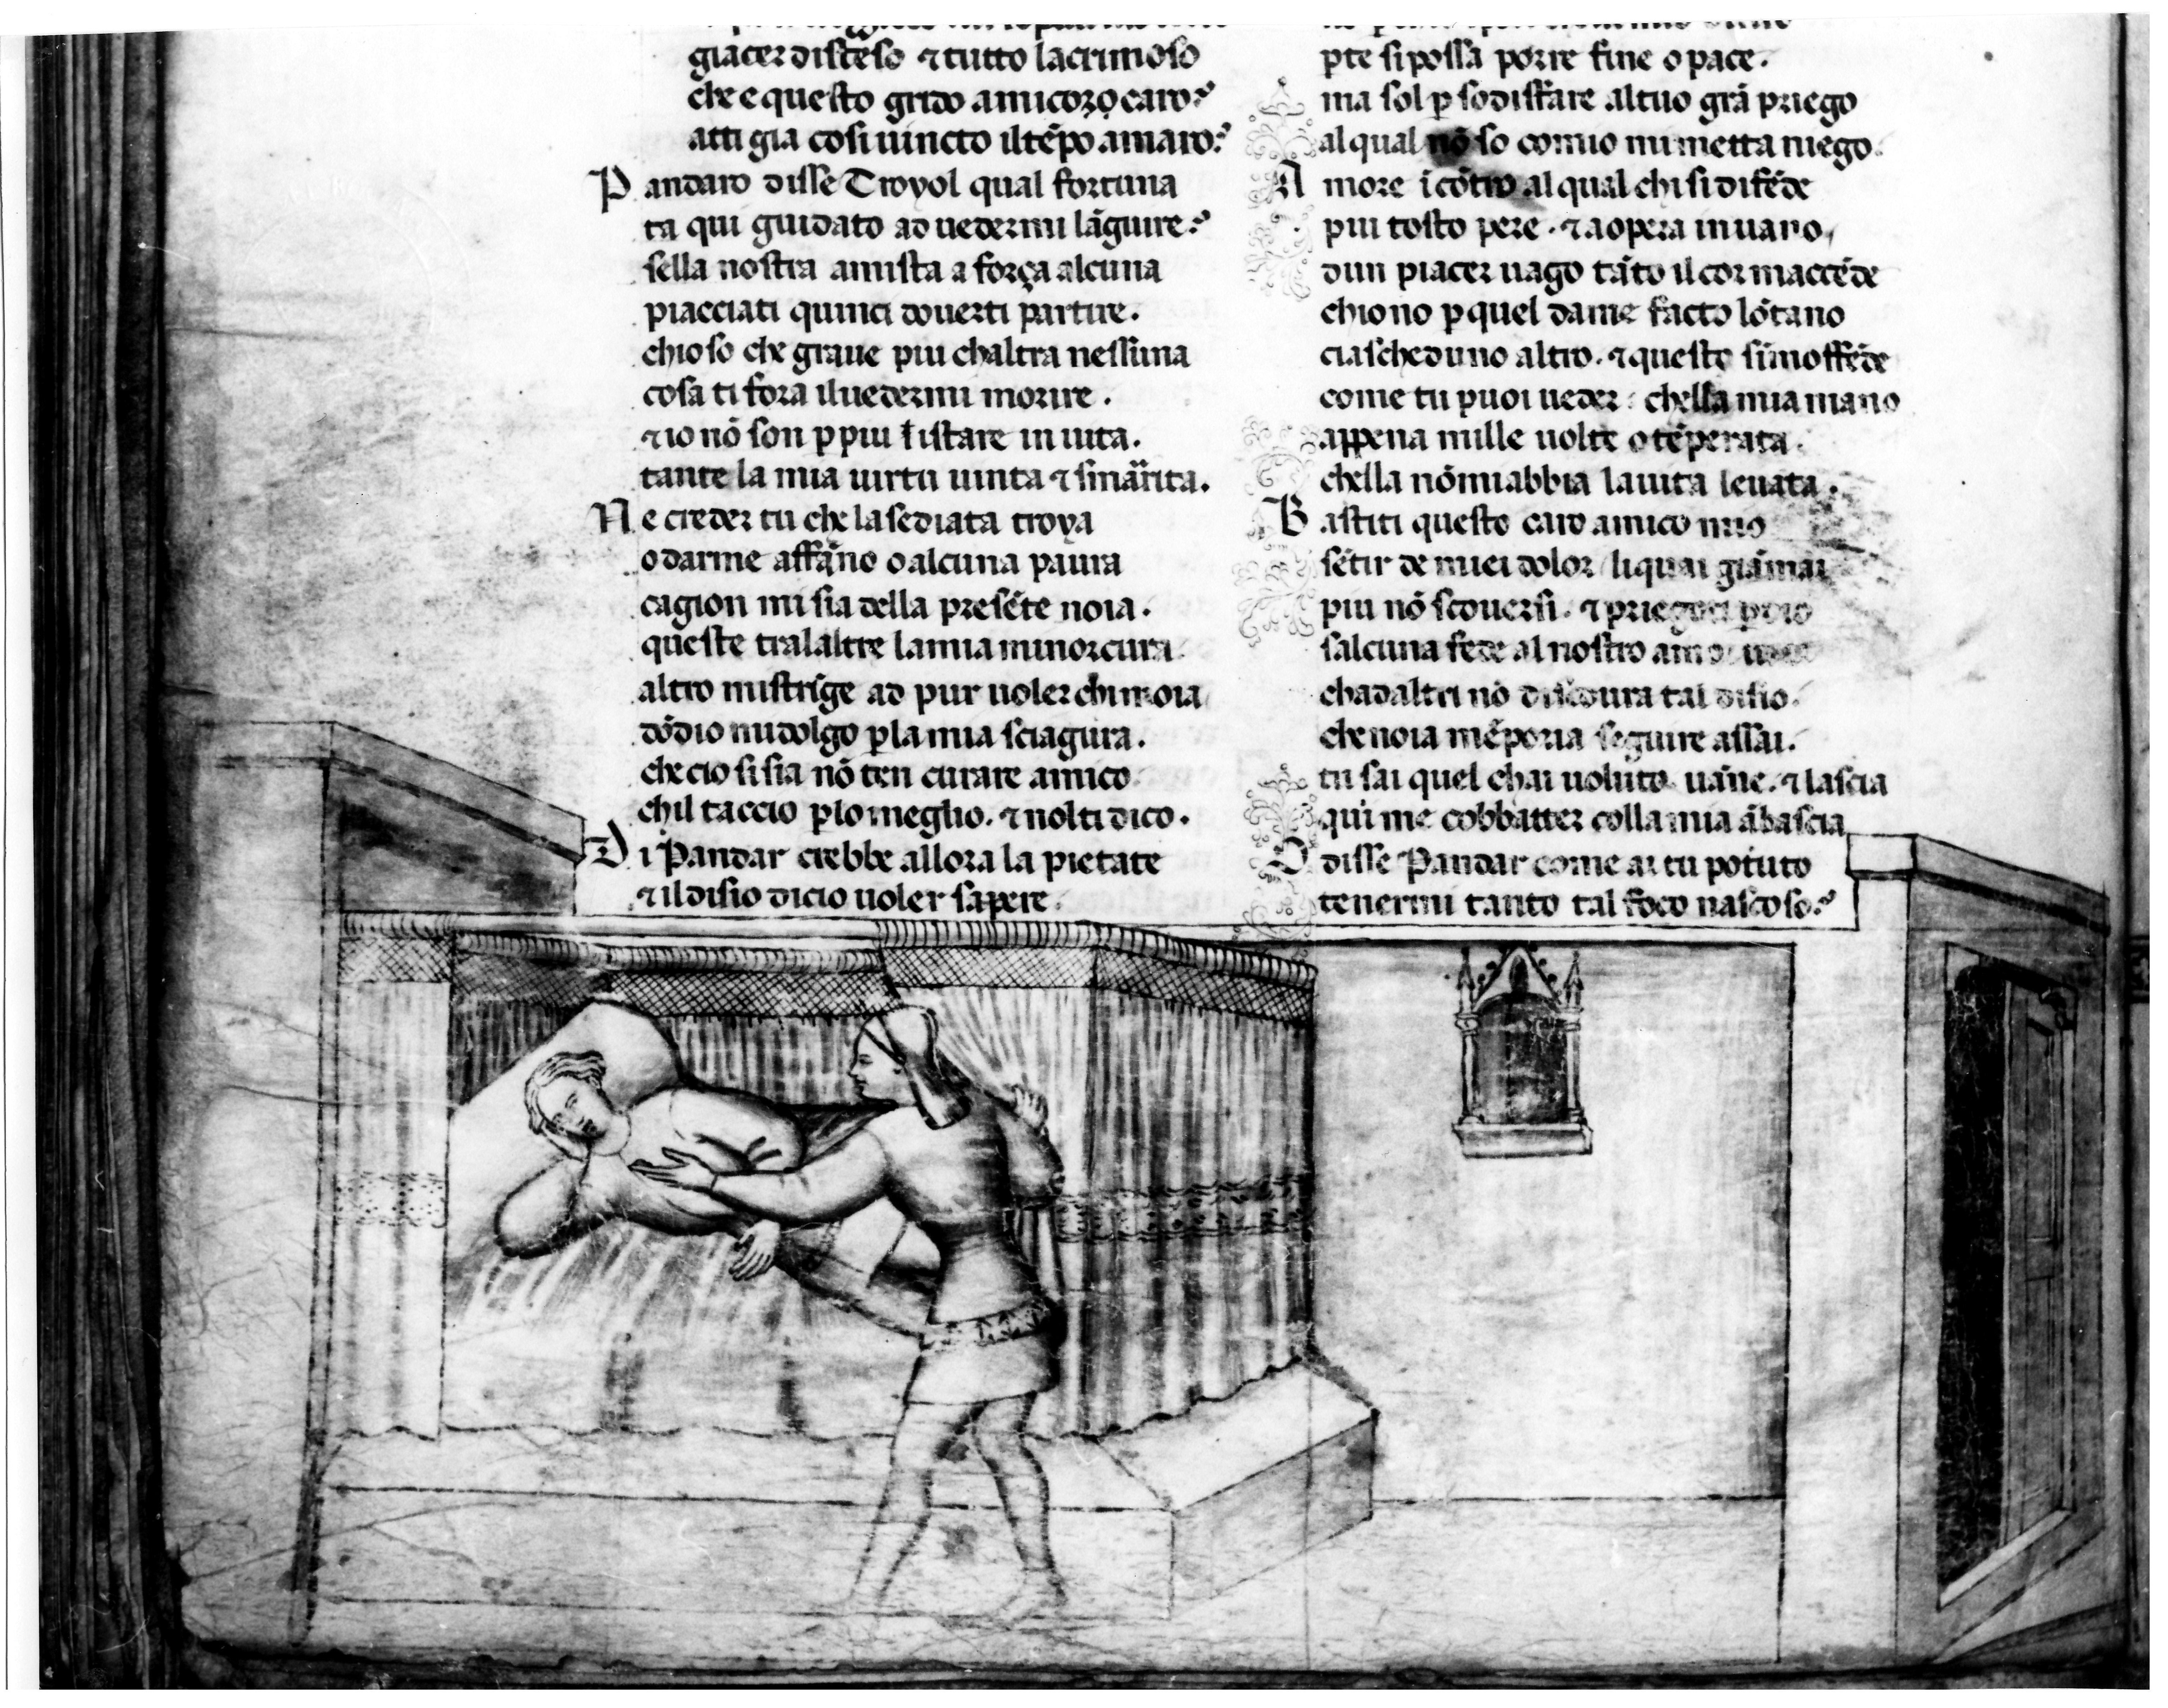 giacer disteso ⁊ tutto lacrimoso
che e questo grido amico.
atti gia cosi uincto il tēpo amaro?
Pandaro disse Troyol qual fortuna
ta qui guidato ad uedermi lāguire?
sella nostra amista a força alcuna
piacciati quinci douerti partire.
chio so che graue piu chaltra nessuna
cosa ti fora il uedermi morire.
⁊ io nō son p piu istare in uita.
tante la mia uirtu uinta ⁊ smarrita.
Ne creder tu che lasediata troya
o darme affāno o alcuna paura
cagion mi sia della presēte noia.
queste tralaltre la mia minor cura
altro mi strīge ad pur uoler chi moia
dōdio mi dolgo p la mia sciagura.
che cio si sia nō ten curare amico
chil taccio p lo meglio. ⁊ nol ti dico.
Di Pandar crebbe allora la pietate
⁊ il disio di cio uoler sapere.
pte si possa porre fine o pace.
ma sol p sodisfare al tuo grā priego
al qual nō so comio mi metta niego.
Amore īcōtro al qual chi si difēde
piu tosto pere. ⁊ aopera in uano,
dun piacer uago tāto il cor maccēde
chio no p quel dame facto lōtano
ciascheduno altro. ⁊ questo si moffēde
come tu puoi ueder: chella mia mano
appena mille uolte o tēperata.
chella nō miabbia la uita leuata.
Bastiti questo caro amico mio
sētir de miei dolor / li quai giāmai
piu nō scouersi. ⁊ priegoti p dio
salcuna fede al nostro amor
chad altri nō discoura tal disio.
che noia mē poria seguire assai.
tu sai quel chai uoluto uāne. ⁊ lascia
qui me cōbbatter colla mia ābascia
O disse Pandar come ai tu potuto
tenermi tanto tal foco nascoso?